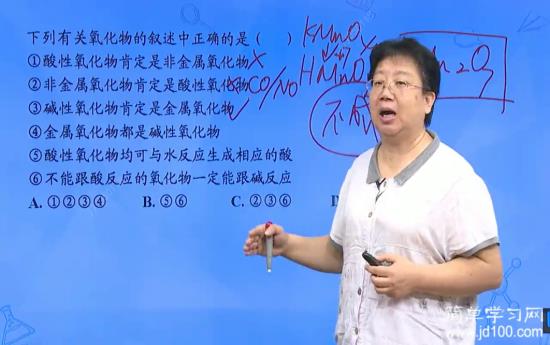 下列有关氧化物的叙述中正确的是（ ）
①酸性氧化物肯定是非金属氧化物×
②非金属氧化物肯定是酸性氧化物× CO/NO
③碱性氧化物肯定是金属氧化物✓
④金属氧化物都是碱性氧化物
⑤酸性氧化物均可与水反应生成相应的酸
⑥不能跟酸反应的氧化物一定能跟碱反应
A. ①②③④ B. ⑤⑥ C. ②③⑥
KMnO
+7
HMnO
不成
简单学习网
www.jd100.com